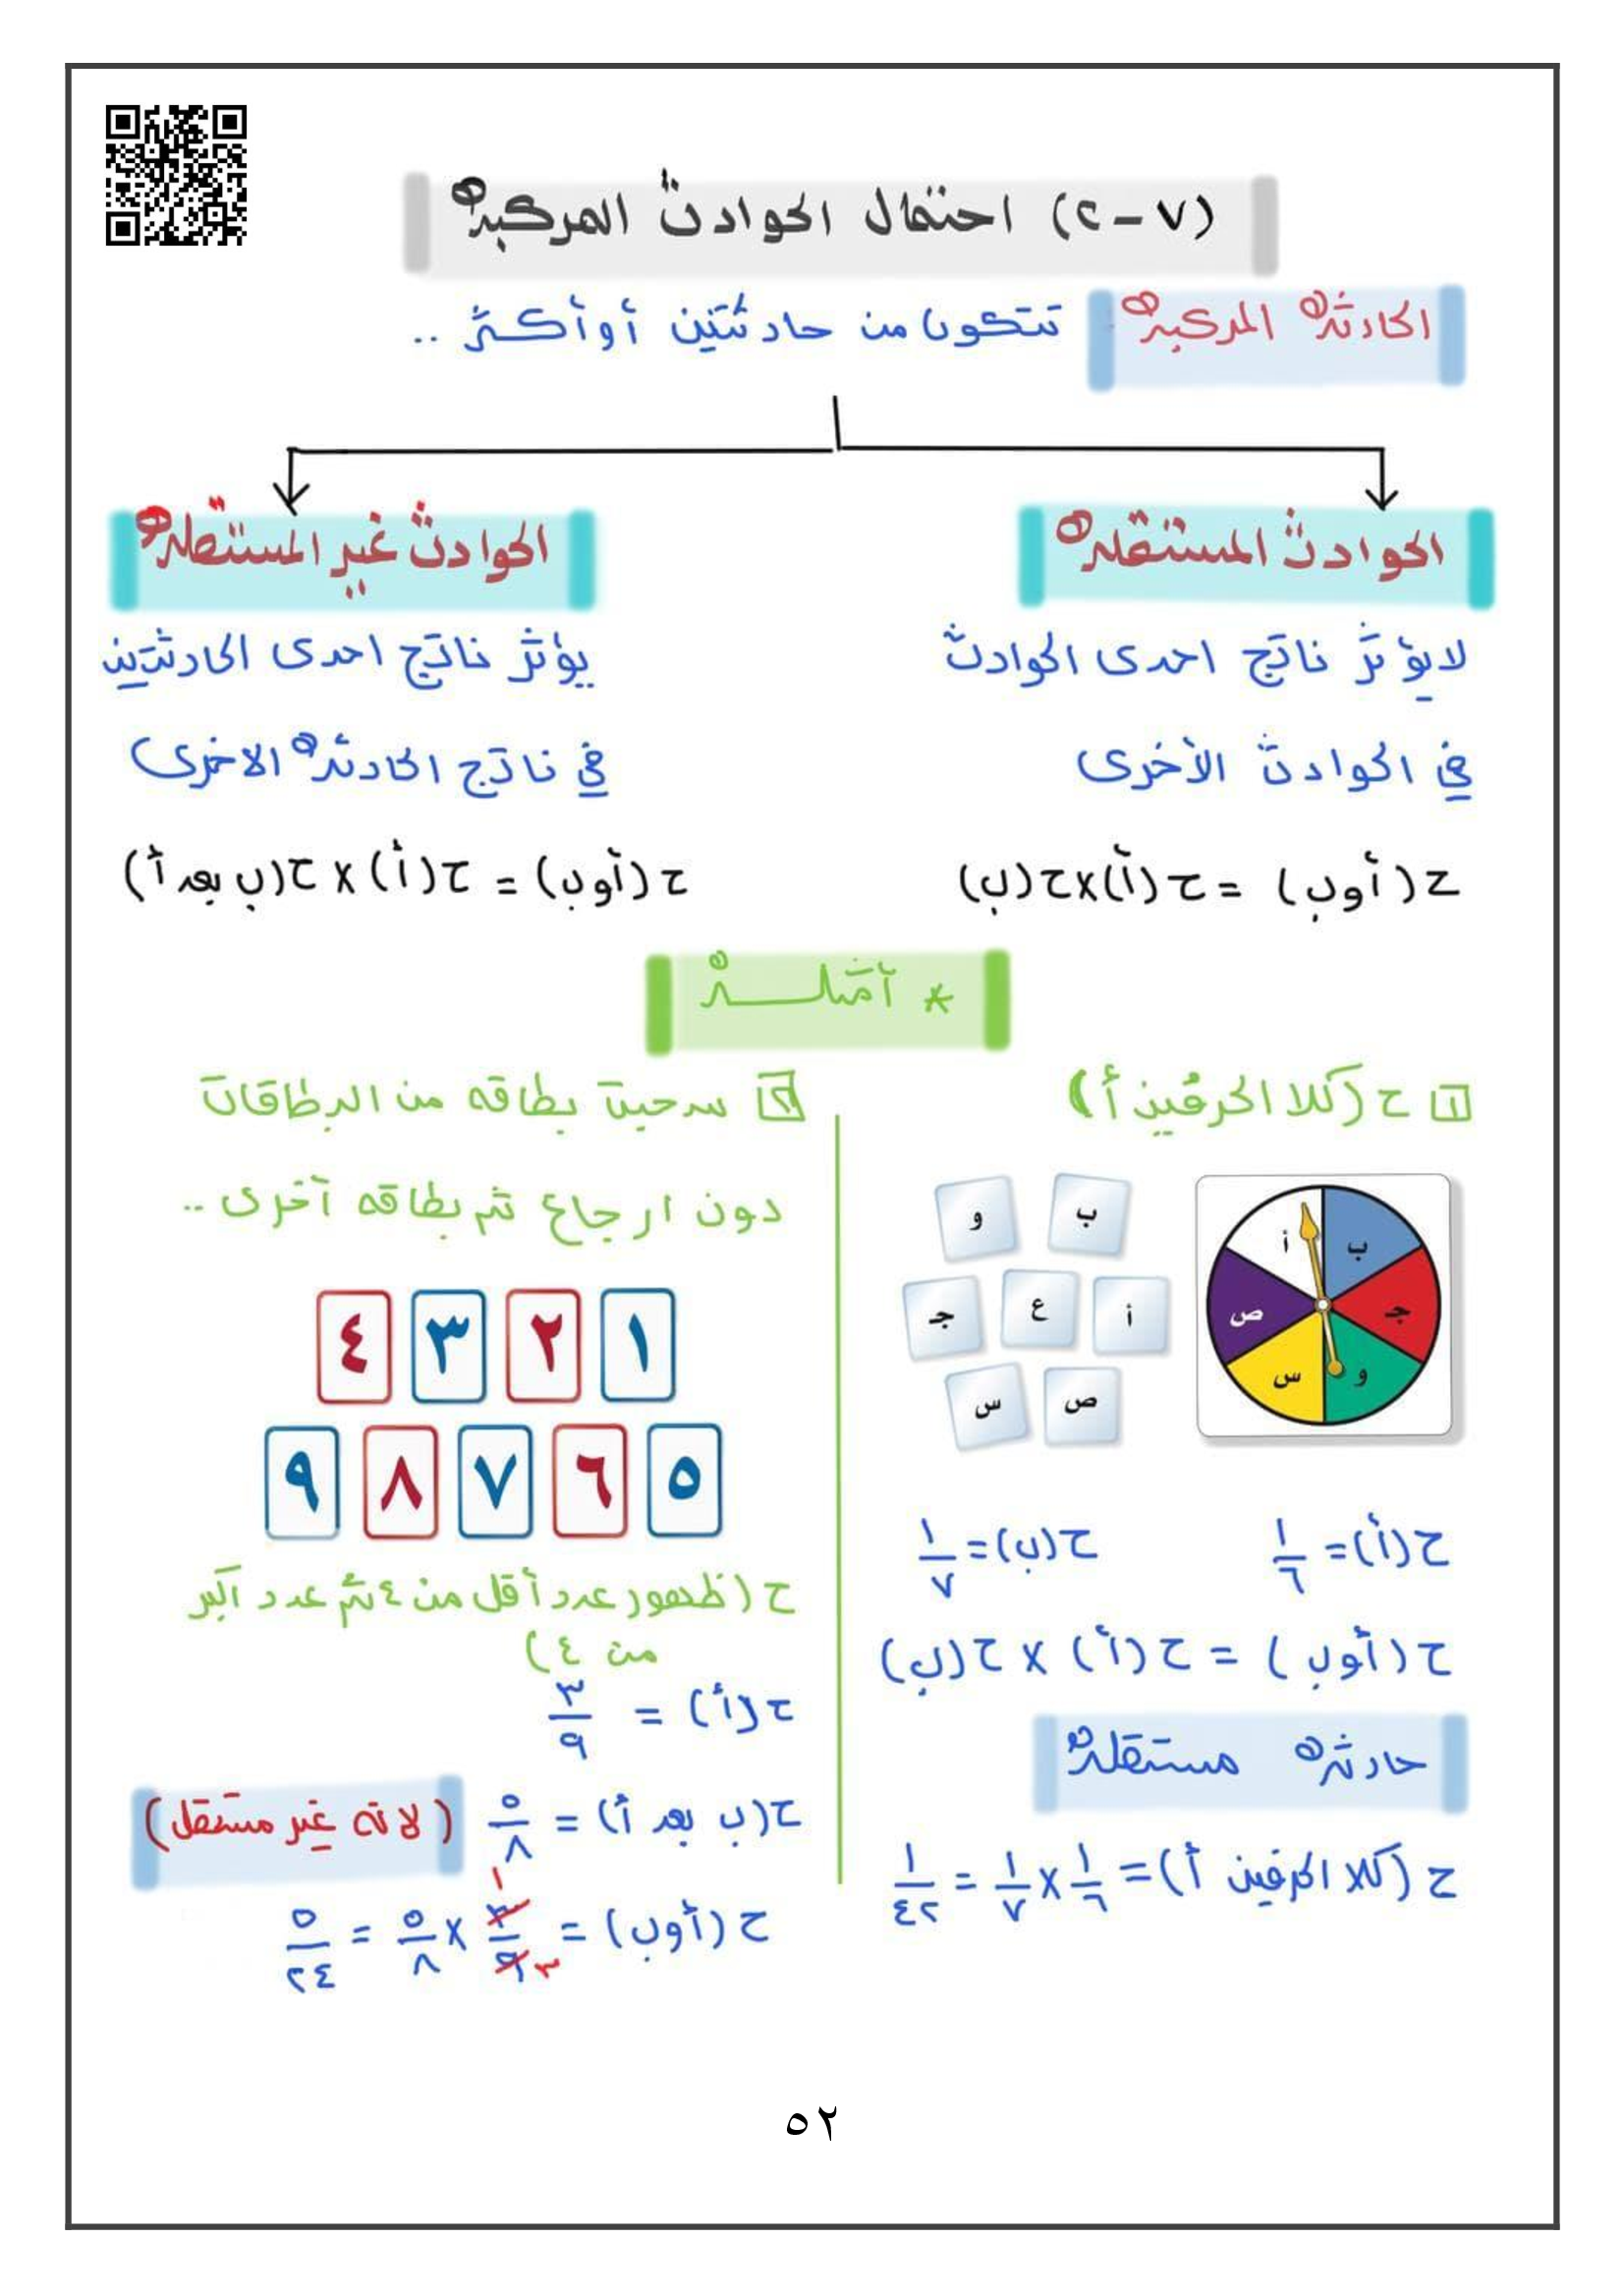 (٧-٢) احتمال الحوادث المركبة
الحادثة المركبة تتكون من حادثتين أو أكثر ..
الحوادث المستقلة
لا يؤثر ناتج احدى الحوادث
في الحوادث الأخرى
ح (أ و ب) = ح (أ) × ح (ب)
الحوادث غير المستقلة
يؤثر ناتج احدى الحادثتين
في ناتج الحادثة الاخرى
ح (أ و ب) = ح (أ) × ح (ب بعد أ)
* أمثلـــة
١ ح (كلا الحرفين أ)
و ب
جـ ع أ
س ص
أ ب جـ و س ص
ح (أ) = ١/٦ ح (ب) = ١/٧
ح (أ و ب) = ح (أ) × ح (ب)
حادثة مستقلة
ح (كلا الحرفين أ) = ١/٦ × ١/٧ = ١/٤٢
٢ سحبت بطاقه من البطاقات
دون ارجاع ثم بطاقه أخرى ..
١ ٢ ٣ ٤
٥ ٦ ٧ ٨ ٩
ح (ظهور عدد أقل من ٤ ثم عدد أكبر
من ٤)
ح (أ) = ٣/٩
ح (ب بعد أ) = ٥/٨ (لانه غير مستقل)
ح (أ و ب) = ٣/٩ × ٥/٨ = ٥/٢٤
١
٣
٥٢